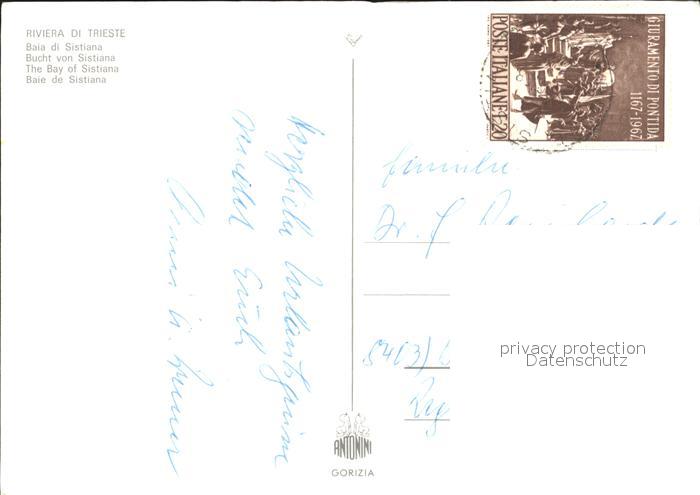 RIVIERA DI TRIESTE
Baia di Sistiana
Bucht von Sistiana
The Bay of Sistiana
Baie de Sistiana
POSTE ITALIANE L. 20
GIURAMENTO DI PONTIDA
1167-1967
Herzliche Urlaubsgrüsse
sendet Euch
Familie
Dr.
privacy protection
Datenschutz
ANTONINI
GORIZIA